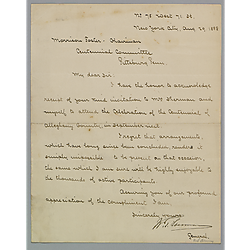 No 75 West 71 St.
New York City, Aug 29, 1888
Morrison Foster - Chairman
Centennial Committee
Pittsburg Penn.
My dear Sir.
I have the honor to acknowledge
receipt of your kind invitation to Mrs Sherman and
myself to attend the Celebration of the Centennial of
Allegheny County, in September next.
I regret that arrangements,
which have long since been concluded, render it
simply impossible to be present on that occasion,
the same which I am sure will be highly enjoyable to
the thousands of active participants.
Assuring you of our profound
appreciation of the compliment I am,
Sincerely yours
W. T. Sherman
General